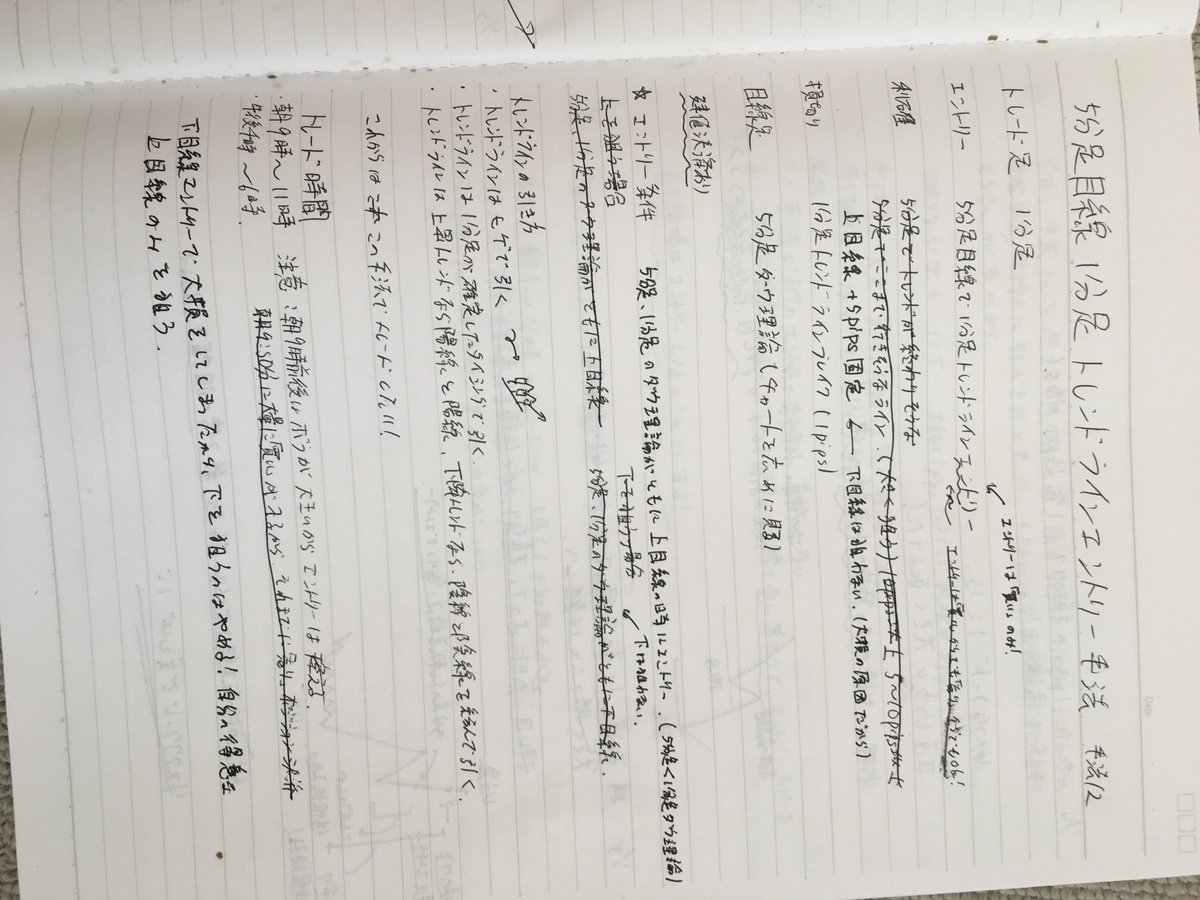 5分足目線 1分足トレンドラインエントリー手法 手法12
トレード足 1分足
エントリーは買いのみ!
エントリー 5分足目線で1分足トレンドラインエントリー
利確 5分足でトレンドが終わりそうな
5分足でここまで行きそうなライン.(大きく狙う) 10pips以上 5~10pips以上
上目線 +5pips固定 ← 下目線は狙わない.(大損の原因だから)
損切り 1分足トレンドラインブレイク(1pips)
目線足 5分足ダウ理論(チャートを広めに見る)
建値決済あり
★エントリー条件 5分足、1分足のダウ理論がともに上目線の時にエントリー.(5分足<1分足ダウ理論)
上を狙う場合 下を狙う場合 下は狙わない.
5分足、1分足のダウ理論がともに上目線 5分足、1分足のダウ理論がともに下目線.
トレンドラインの引き方
・トレンドラインはヒゲで引く
・トレンドラインは1分足が確定したタイミングで引く.
・トレンドラインは上昇トレンドなら陽線と陽線、下降トレンドなら、陰線と陰線を結んで引く.
これからはこの手法でトレードしていく!
トレード時間
・朝9時~11時 注意:朝9時前後はボラが大きいからエントリーは控える.
朝9:50分に大量に買いが入るから それまでに売りポジション決済
・午後 ~6時.
下目線エントリーで大損をしてしまったから、下を狙うのはやめる! 自分の得意な
上目線のみを狙う.